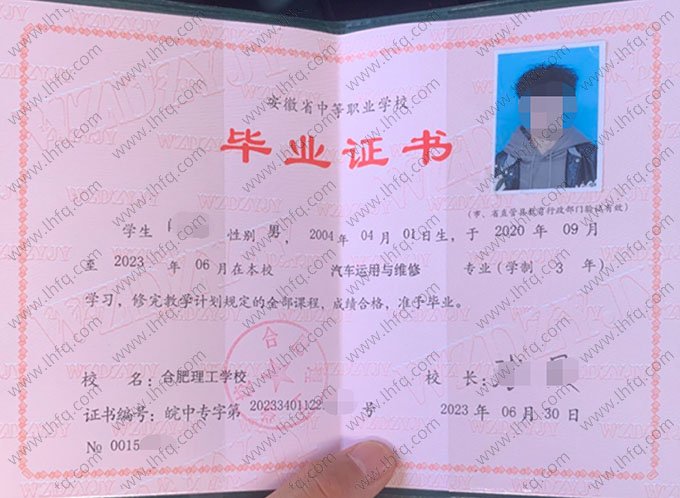 安徽省中等职业学校
毕业证书
(市、省直管县教育行政部门验证有效)
学生 性别 男, 2004年 04 月 01日生, 于 2020 年 09月
至 2023 年 06月在本校 汽车运用与维修 专业(学制 3 年)
学习, 修完教学计划规定的全部课程, 成绩合格, 准予毕业。
校 名: 合肥理工学校
校 长:
证书编号: 皖中专字第 20233401122 号
2023 年 06 月 30 日
№ 0015
www.lhfq.com
WZDZYJY